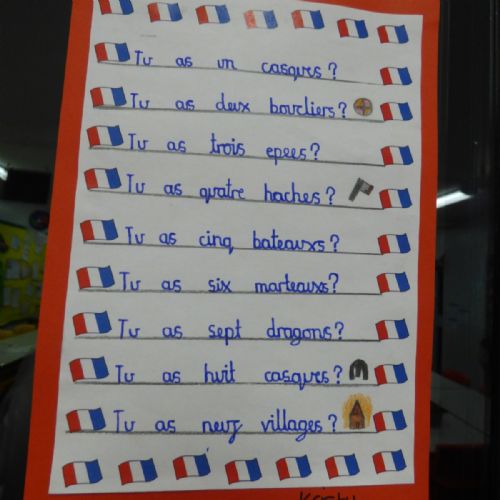 Tu as un casques?
Tu as deux boucliers?
Tu as trois epees?
Tu as quatre haches?
Tu as cinq bateauxs?
Tu as six marteauxs?
Tu as sept dragons?
Tu as huit casques?
Tu as neuf villages?